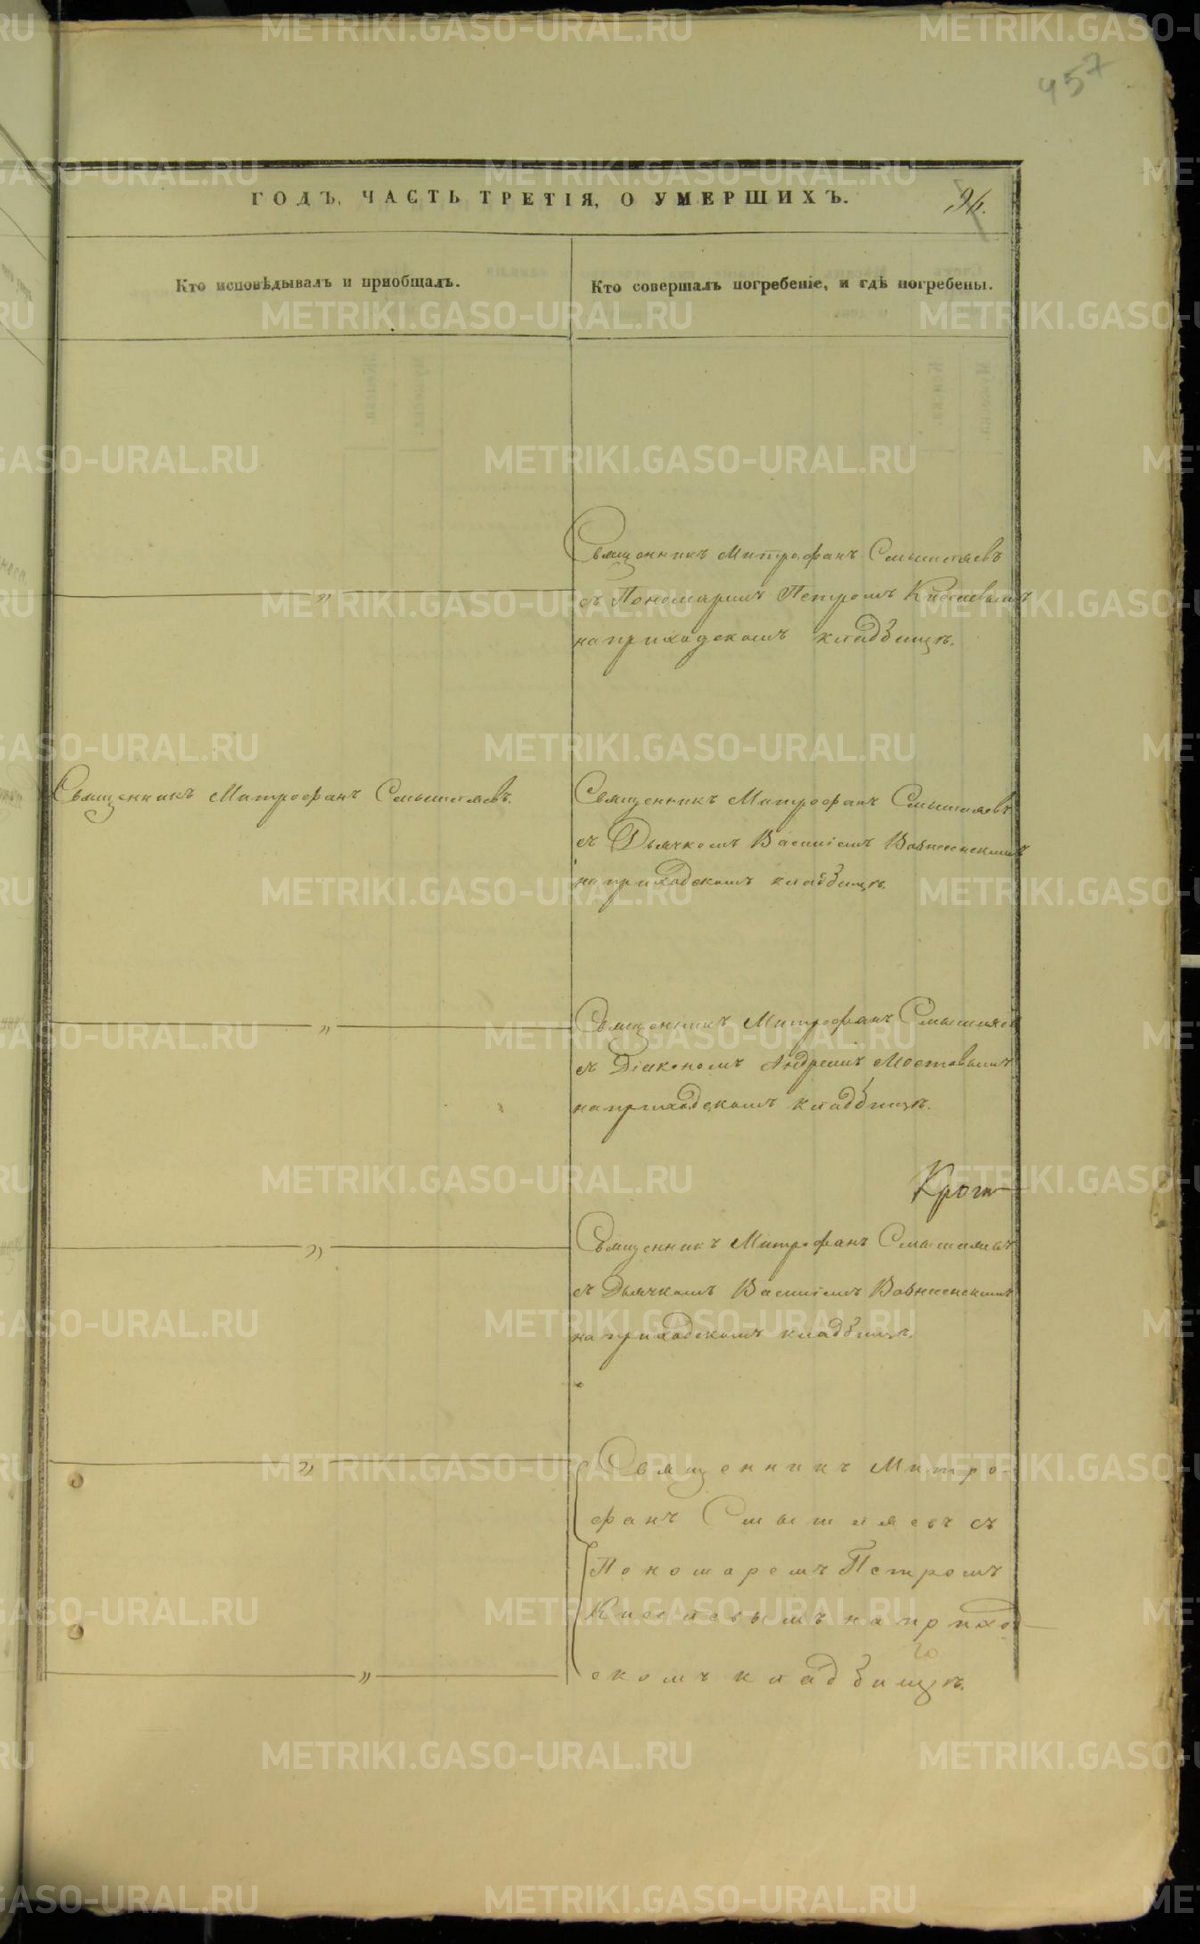 457
ГОДЪ, ЧАСТЬ ТРЕТІЯ, О УМЕРШИХЪ.
96.
Кто исповѣдывалъ и пріобщалъ.
Кто совершалъ погребеніе, и гдѣ погребены.
Священникъ Митрофанъ Смышляевъ
съ Пономаримъ Петромъ Киселевымъ
на приходскомъ кладбищѣ.
Священникъ Митрофанъ Смышляевъ.
Священникъ Митрофанъ Смышляевъ
съ Дьячкомъ Василіемъ Вознесенскимъ
на приходскомъ кладбищѣ.
Священникъ Митрофанъ Смышляев
съ Діакономъ Андреимъ Мостовымъ
на приходскомъ кладбищѣ.
Священникъ Митрофанъ Смышляевъ
съ Дьячкомъ Василіемъ Вознесенскимъ
на приходскомъ кладбищѣ.
Священникъ Митро-
фанъ Смышляевъ съ
Пономаремъ Петромъ
Киселевымъ на приход
скомъ кладбищѣ.
METRIKI.GASO-URAL.RU